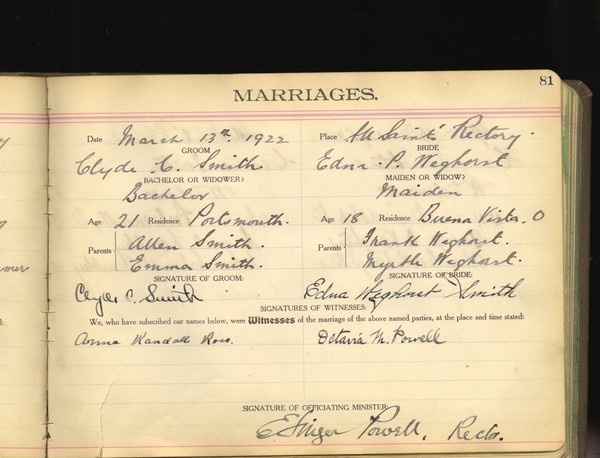 81
MARRIAGES.
Date March 13th. 1922 Place All Saints' Rectory.
GROOM BRIDE
Clyde C. Smith Edna P. Weghorst
BACHELOR OR WIDOWER? MAIDEN OR WIDOW?
Bachelor Maiden
Age 21 Residence Portsmouth. Age 18 Residence Buena Vista. O
Parents Allen Smith. Parents Frank Weghorst.
Emma Smith. Myrtle Weghorst.
SIGNATURE OF GROOM: SIGNATURE OF BRIDE:
Clyde C. Smith Edna Weghorst Smith
SIGNATURES OF WITNESSES:
We, who have subscribed our names below, were Witnesses of the marriage of the above named parties, at the place and time stated:
Anna Randall Ross. Octavia M. Powell
SIGNATURE OF OFFICIATING MINISTER:
Powell, Rector.